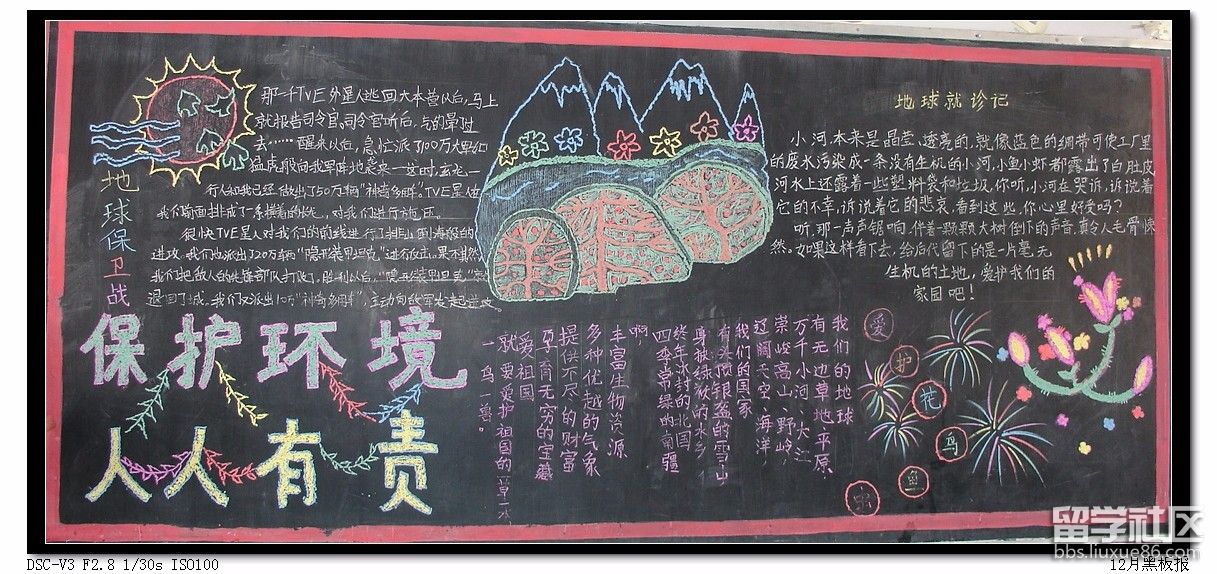 地球保卫战
那一个TVE外星人逃回大本营以后,马上
就报告司令官。司令官听后,气的晕过
去……醒来以后,急忙派了100万大军如
猛虎般向我军阵地袭来
行人和我已经做出了50万辆
我们
很快TVE星人对我们的前线进行了排山倒海般的
进攻,我们也派出了20万辆"隐形装甲坦克"进行反击。果不其然
退回了城。我们又派出10万"神奇多
保护环境
人人有责
地球就诊记
小河本来是晶莹、透亮的,就像蓝色的绸带可使工厂里
的废水污染成一条没有生机的小河,小鱼小虾都露出了白肚皮
河水上还露着一些塑料袋和垃圾,你听,小河在哭诉,诉说着
它的不幸,诉说着它的悲哀,看到这些,你心里好受吗?
听,那一声声锯响,伴着一颗颗大树倒下的声音,真令人毛骨悚
然。如果这样看下去,给后代留下的是一片毫无
生机的土地,爱护我们的
家园吧!
我们的地球
有无边草地、平原,
万千小河、大江
崇峻高山、野岭,
辽阔天空、海洋,
我们的国家
有头顶银盔的雪山
身披绿秋的水乡
终年冰封的北国
四季常绿的南疆
啊,
丰富生物资源
多种优越的气象
提供不尽的财富
孕育无穷的宝藏
爱祖国
就要爱护祖国的一草一木
一鸟一兽。
爱护花鸟鱼虫
留学社区
bbs.liuxue86.com
DSC-V3 F2.8 1/30s ISO100
12月黑板报